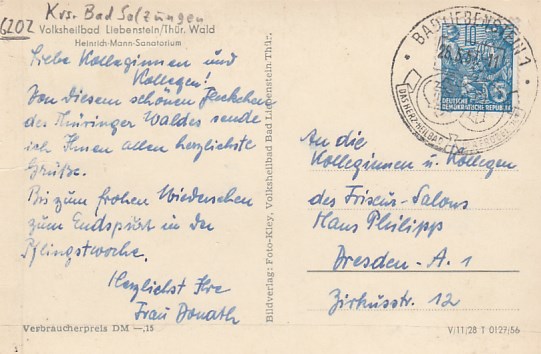 6202 Krs. Bad Salzungen
Volksheilbad Liebenstein/Thür. Wald
Heinrich-Mann-Sanatorium
Liebe Kolleginnen und
Kollegen!
Von diesem schönen Fleckchen
des Thüringer Waldes sende
ich Ihnen allen herzlichste
Grüße.
Bis zum frohen Wiedersehen
zum Endspurt in der
Pfingstwoche.
Herzlichst Ihre
Frau Donath
Verbraucherpreis DM —,15
Bildverlag: Foto-Kley, Volksheilbad Bad Liebenstein Thür.
BAD LIEBENSTEIN 1
DAS HERZHEILBAD
10
DEUTSCHE
DEMOKRATISCHE REPUBLIK
An die
Kolleginnen u. Kollegen
des Friseur-Salons
Hans Philipp
Dresden-A. 1
Zirkusstr. 12
V/11/28 T 0127/56